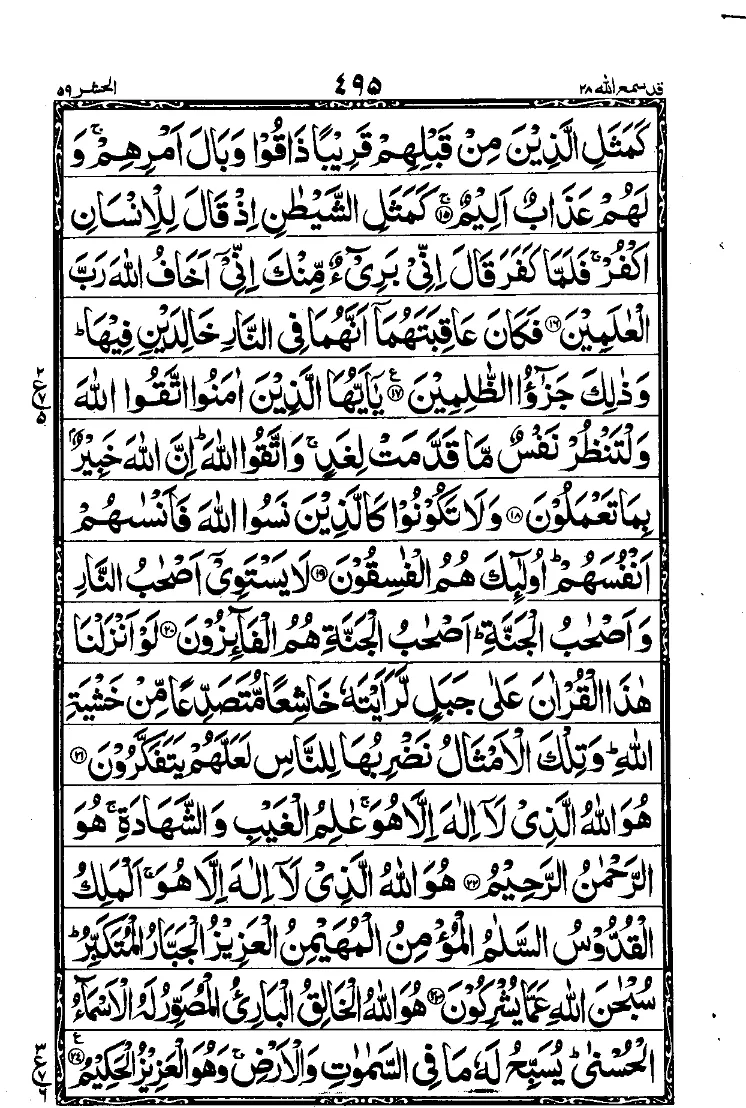 قد سمع الله ٢٨
٤٩٥
الحشر ٥٩
كَمَثَلِ الَّذِيْنَ مِنْ قَبْلِهِمْ قَرِيْبًا ذَاقُوْا وَبَالَ اَمْرِهِمْ ۚ وَ
لَهُمْ عَذَابٌ اَلِيْمٌ ۚ ﴿۱۵﴾ كَمَثَلِ الشَّيْطٰنِ اِذْ قَالَ لِلْاِنْسَانِ
اكْفُرْ ۚ فَلَمَّا كَفَرَ قَالَ اِنِّىْ بَرِىْٓءٌ مِّنْكَ اِنِّىْٓ اَخَافُ اللّٰهَ رَبَّ
الْعٰلَمِيْنَ ﴿۱۶﴾ فَكَانَ عَاقِبَتَهُمَاۤ اَنَّهُمَا فِى النَّارِ خَالِدَيْنِ فِيْهَا ؕ
وَذٰلِكَ جَزٰٓؤُا الظّٰلِمِيْنَ ﴿۱۷﴾ ع يٰۤاَيُّهَا الَّذِيْنَ اٰمَنُوا اتَّقُوا اللّٰهَ
وَلْتَنْظُرْ نَفْسٌ مَّا قَدَّمَتْ لِغَدٍ ۚ وَاتَّقُوا اللّٰهَ ؕ اِنَّ اللّٰهَ خَبِيْرٌۢ
بِمَا تَعْمَلُوْنَ ﴿۱۸﴾ وَلَا تَكُوْنُوْا كَالَّذِيْنَ نَسُوا اللّٰهَ فَاَنْسٰىهُمْ
اَنْفُسَهُمْ ؕ اُولٰٓئِكَ هُمُ الْفٰسِقُوْنَ ﴿۱۹﴾ لَا يَسْتَوِىْٓ اَصْحٰبُ النَّارِ
وَاَصْحٰبُ الْجَنَّةِ ؕ اَصْحٰبُ الْجَنَّةِ هُمُ الْفَآئِزُوْنَ ﴿۲۰﴾ لَوْ اَنْزَلْنَا
هٰذَا الْقُرْاٰنَ عَلٰى جَبَلٍ لَّرَاَيْتَهٗ خَاشِعًا مُّتَصَدِّعًا مِّنْ خَشْيَةِ
اللّٰهِ ؕ وَتِلْكَ الْاَمْثَالُ نَضْرِبُهَا لِلنَّاسِ لَعَلَّهُمْ يَتَفَكَّرُوْنَ ﴿۲۱﴾
هُوَ اللّٰهُ الَّذِىْ لَاۤ اِلٰهَ اِلَّا هُوَ ۚ عٰلِمُ الْغَيْبِ وَالشَّهَادَةِ ۚ هُوَ
الرَّحْمٰنُ الرَّحِيْمُ ﴿۲۲﴾ هُوَ اللّٰهُ الَّذِىْ لَاۤ اِلٰهَ اِلَّا هُوَ ۚ اَلْمَلِكُ
الْقُدُّوْسُ السَّلٰمُ الْمُؤْمِنُ الْمُهَيْمِنُ الْعَزِيْزُ الْجَبَّارُ الْمُتَكَبِّرُ ؕ
سُبْحٰنَ اللّٰهِ عَمَّا يُشْرِكُوْنَ ﴿۲۳﴾ هُوَ اللّٰهُ الْخَالِقُ الْبَارِئُ الْمُصَوِّرُ لَهُ الْاَسْمَآءُ
الْحُسْنٰى ؕ يُسَبِّحُ لَهٗ مَا فِى السَّمٰوٰتِ وَالْاَرْضِ ۚ وَهُوَ الْعَزِيْزُ الْحَكِيْمُ ﴿۲۴﴾ ع